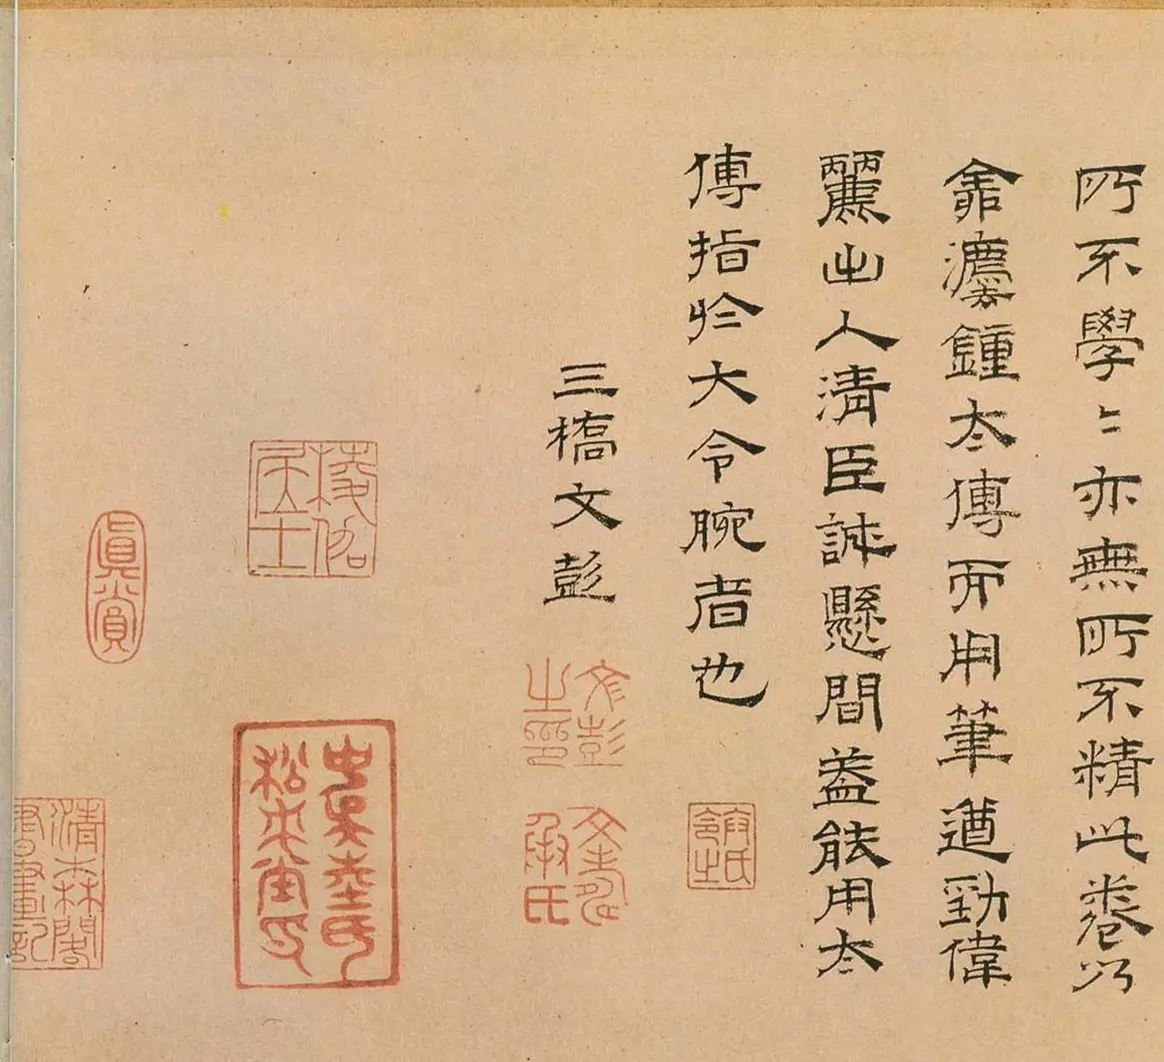 所不學〻亦無所不精此卷以
灋鍾太傅而用筆遒勁偉
麗出入清臣誠懸間蓋能用太
傅指於大令腕者也
三橋文彭
文彭之印
文壽承氏
棱伽居士
眞賞
清森閣書畫記